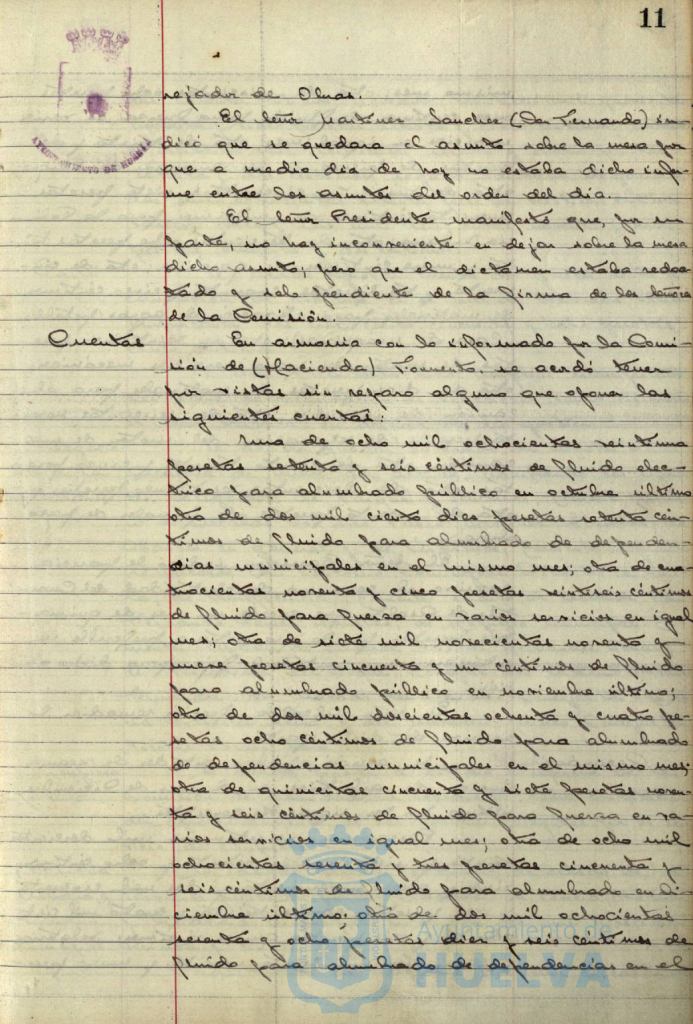 11
AYUNTAMIENTO DE HUELVA
rejador de Obras.
El Señor Martinez Sanchez (Don Fernando) in-
dicó que se quedara el asunto sobre la mesa por
que a medio dia de hoy no estaba dicho infor-
me entre los asuntos del orden del día.
El Señor Presidente manifestó que, por su
parte, no hay inconveniente en dejar sobre la mesa
dicho asunto; pero que el dictámen estaba redac-
tado y solo pendiente de la firma de los Señores
de la Comisión.
Cuentas
En armonia con lo informado por la Comi-
sión de (Hacienda) Fomento, se acordó tener
por vistas sin reparo alguno que oponer las
siguientes cuentas:
Una de ocho mil ochocientas veintiuna
pesetas setenta y seis céntimos de fluido elec-
trico para alumbrado público en octubre último
otra de dos mil ciento diez pesetas setenta cén-
timos de fluido para alumbrado de dependen-
cias municipales en el mismo mes; otra de cua-
trocientas noventa y cinco pesetas veintiseis céntimos
de fluido para fuerza en varios servicios en igual
mes; otra de siete mil novecientas noventa y
nueve pesetas cincuenta y un céntimos de fluido
para alumbrado público en noviembre último;
otra de dos mil doscientas ochenta y cuatro pe-
setas ocho céntimos de fluido para alumbrado
de dependencias municipales en el mismo mes;
otra de quinientas cincuenta y siete pesetas noven-
ta y seis céntimos de fluido para fuerza en va-
rios servicios en igual mes; otra de ocho mil
ochocientas sesenta y tres pesetas cincuenta y
seis céntimos de fluido para alumbrado en Di-
ciembre último; otra de dos mil ochocientas
sesenta y ocho pesetas diez y seis céntimos de
fluido para alumbrado de dependencias en el
Ayuntamiento de
HUELVA